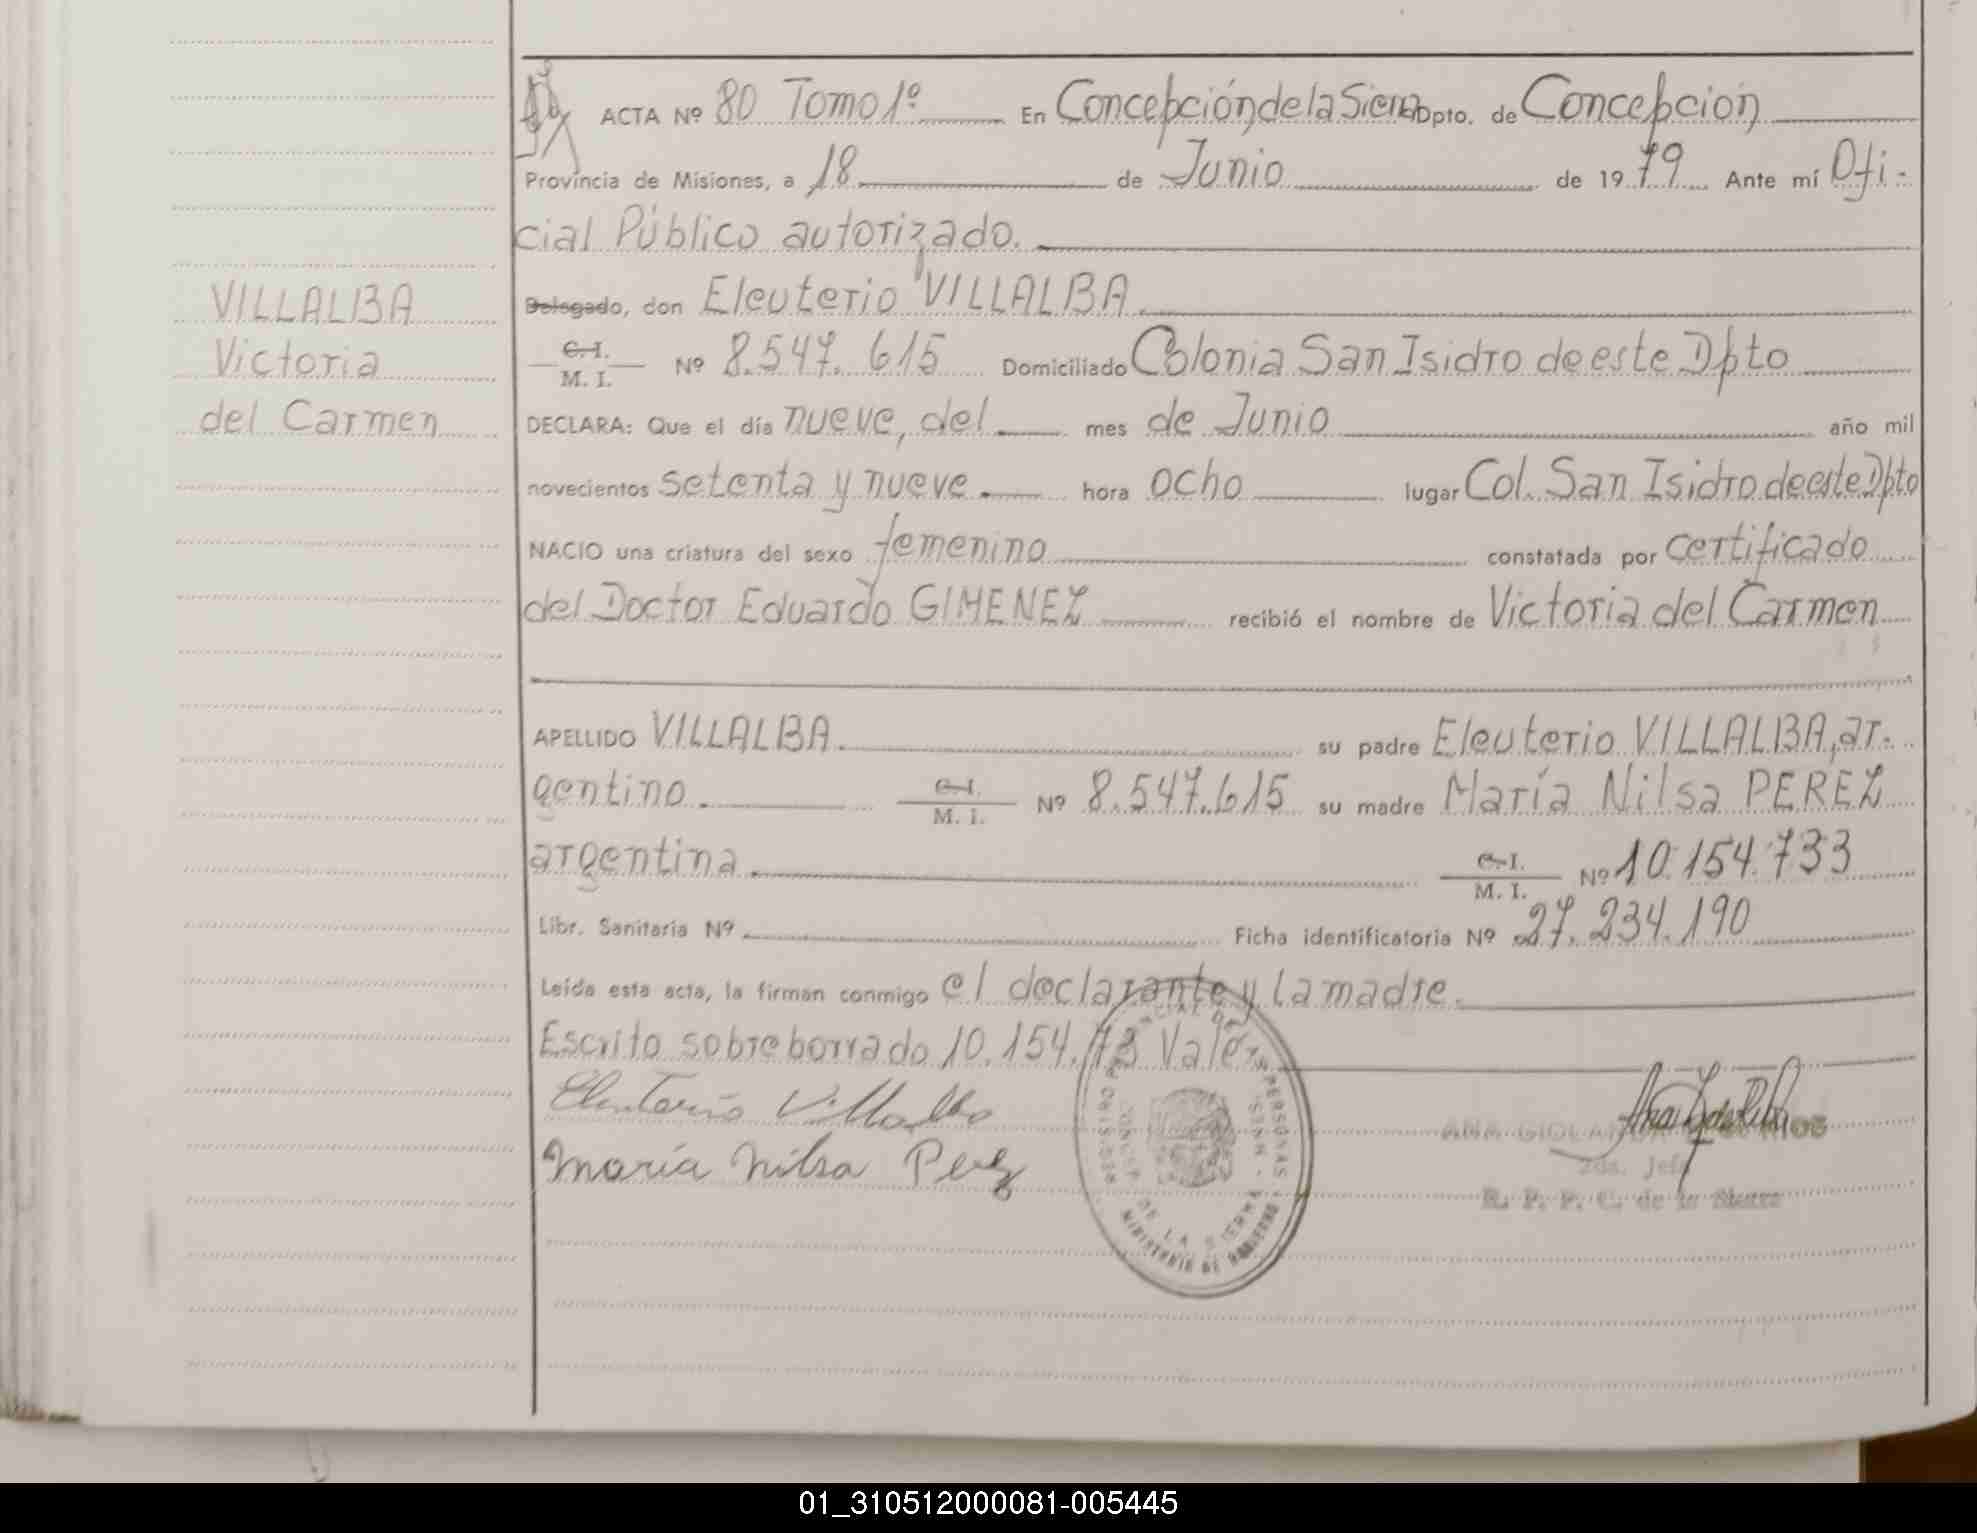 ACTA Nº 80 Tomo 1º En Concepción de la Sierra Dpto. de Concepción
Provincia de Misiones, a 18 de Junio de 1979 Ante mí Ofi-
cial Público autorizado.
VILLALBA
Delegado, don Eleuterio VILLALBA
C. I.
M. I. Nº 8.547.615 Domiciliado Colonia San Isidro de este Dpto
Victoria
del Carmen
DECLARA: Que el día nueve, del mes de Junio año mil
novecientos setenta y nueve hora ocho lugar Col. San Isidro de este Dpto
NACIO una criatura del sexo femenino constatada por certificado
del Doctor Eduardo GIMENEZ recibió el nombre de Victoria del Carmen
APELLIDO VILLALBA. su padre Eleuterio VILLALBA, ar-
gentino. C. I. M. I. Nº 8.547.615 su madre María Nilsa PEREZ
argentina. C. I. M. I. Nº 10.154.733
Libr. Sanitaria Nº Ficha identificatoria Nº 27.234.190
Leída esta acta, la firman conmigo el declarante y la madre.
Escrito sobreborrado 10.154.73 Vale
Eleuterio Villalba
María Nilsa Perez
DE LAS PERSONAS
DE LA SIERRA
MINISTERIO DE GOBIERNO
2da. Jefe
R. P. P. C. de la Sierra
01_310512000081-005445